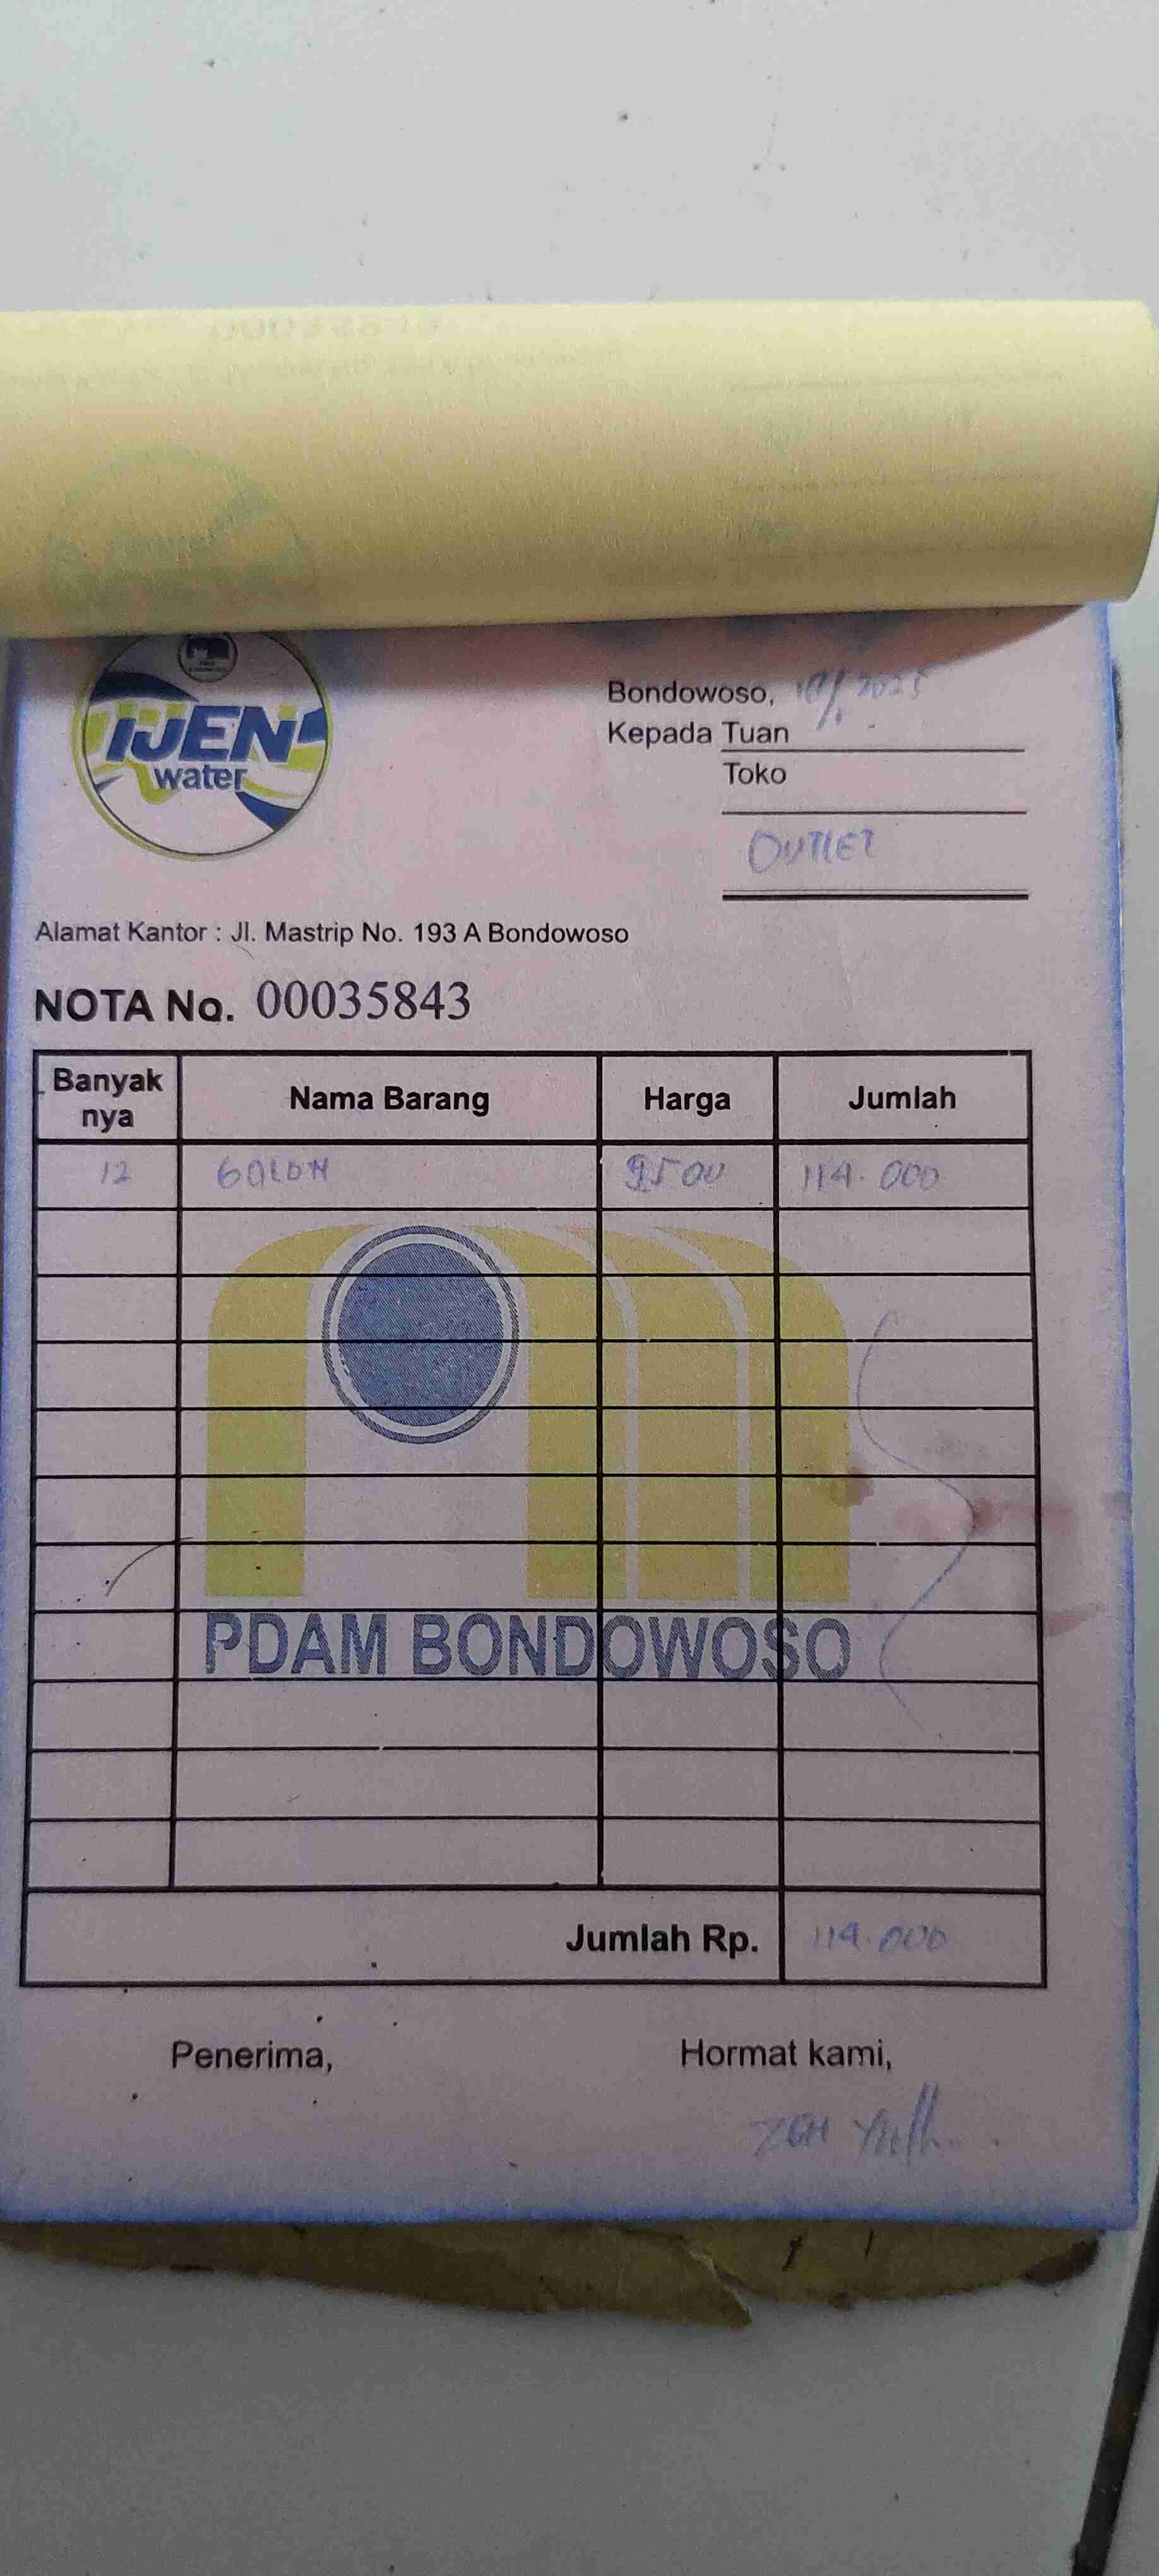 IJEN
water
Bondowoso, 2025
Kepada Tuan
Toko
OUTLET
Alamat Kantor : Jl. Mastrip No. 193 A Bondowoso
NOTA No. 00035843
Banyak nya Nama Barang Harga Jumlah
12 GALON 9500 114.000
PDAM BONDOWOSO
Jumlah Rp. 114.000
Penerima, Hormat kami,